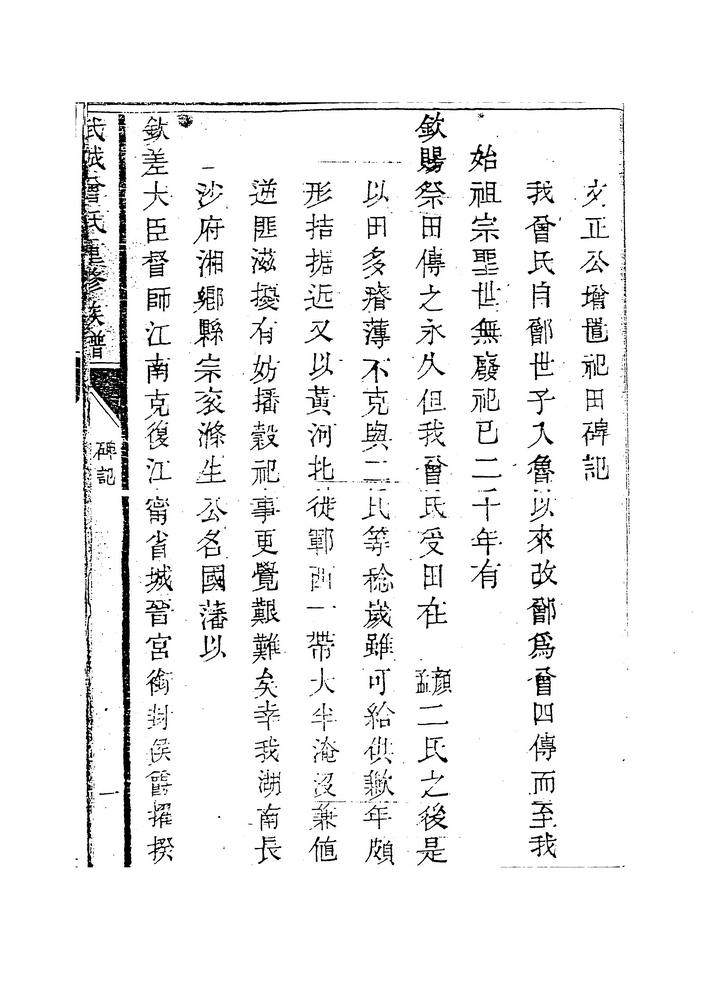 文正公增置祀田碑記
我曾氏自鄫世子入魯以來改鄫為曾四傳而至我
始祖宗聖世無廢祀已二千年有
欽賜祭田傳之永久但我曾氏受田在 顏孟二氏之後是
以田多瘠薄不克與二氏等稔歲雖可給供歉年頗
形拮据近又以黃河北徙鄆西一帶大半淹沒兼值
逆匪滋擾有妨播穀祀事更覺艱難矣幸我湖南長
沙府湘鄉縣宗袞滌生公名國藩以
欽差大臣督師江南克復江甯省城晉宮銜封侯爵擢揆
武城曾氏重修族譜
碑記
一